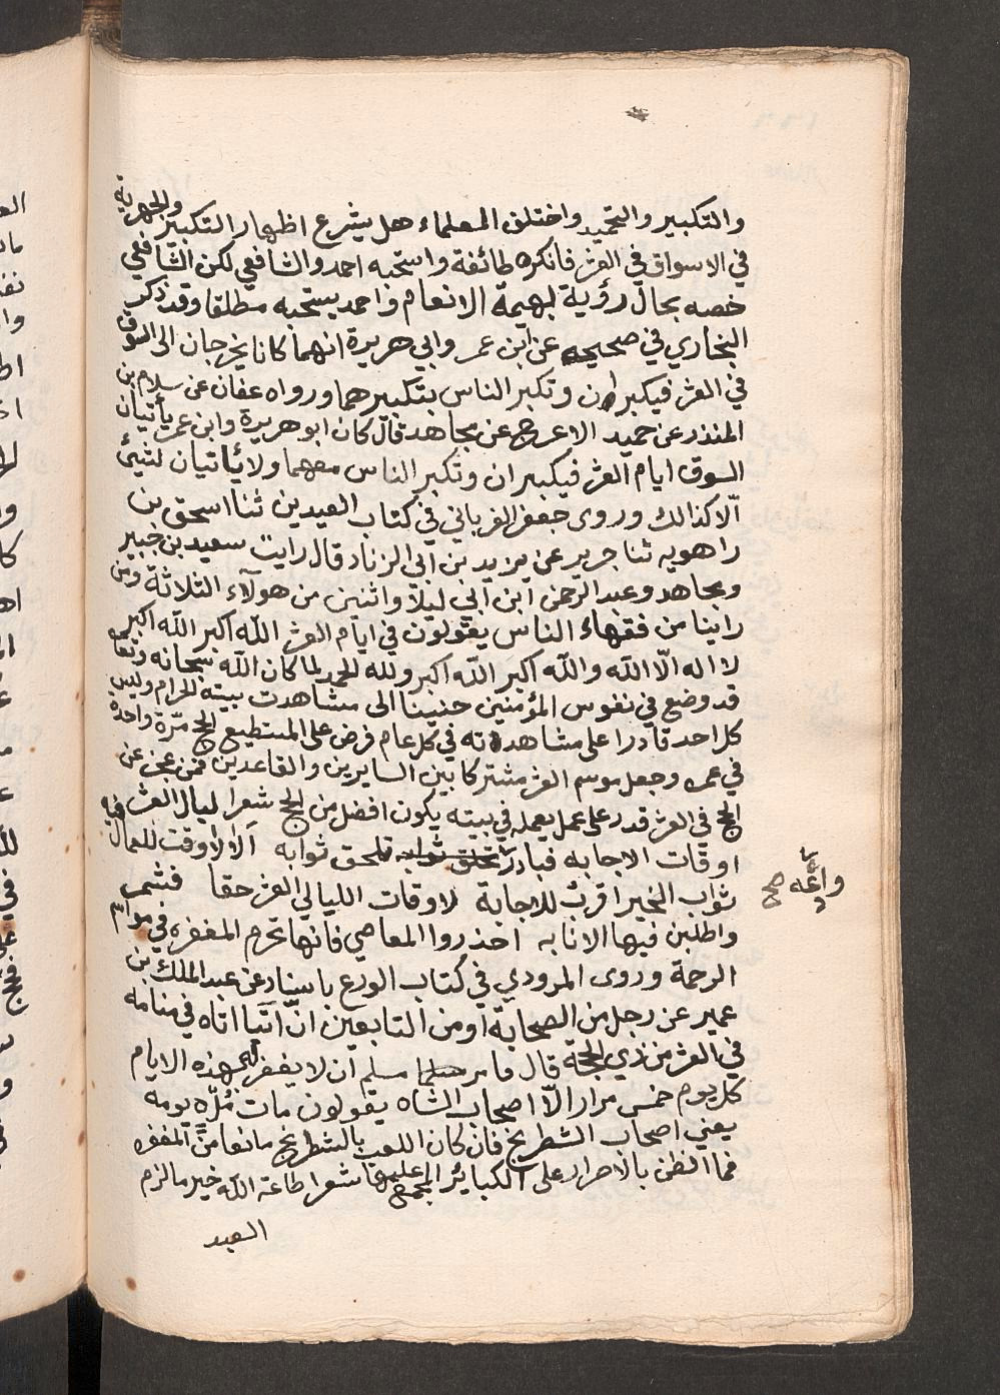 والتكبير والتحميد واختلق المعلماء هل يشرع اظهار التكبير والجهر به
في الاسواق في العشر فانكره طائفة واستحبه احمد والشافعي لكن الشافعي
خصه بحال رؤية بهيمة الانعام واحمد يستحبه مطلقا وقد ذكر
البخاري في صحيحه عن ابن عمر وابي هريرة انهما كانا يخرجان الى السوق
في العشر فيكبران وتكبر الناس بتكبيرهما ورواه عفان عن سلام بن
المنذر عن حميد الاعرج عن مجاهد قال كان ابو هريرة وابن عمر يأتيان
السوق ايام العشر فيكبران وتكبر الناس معهما ولا يأتيان لشيئ
الا كذالك وروى جعفر الفرياني في كتاب العيدين ثنا اسحق بن
راهويه ثنا جرير عن يزيد بن ابي الزناد قال رايت سعيد بن جبير
ومجاهد وعبد الرحمن ابن ابي ليلا واثنين من هولآء الثلاثة ومن
راينا من فقهاء الناس يقولون في ايام العشر الله اكبر الله اكبر
لا اله الا الله والله اكبر الله اكبر ولله الحمد لما كان الله سبحانه وتعا
قد وضع في نفوس المؤمنين حنينا الى مشاهدت بيته الحرام وليس
كل احد قادرا على مشاهدته في كل عام فرض على المستطيع الحج مرة واحدة
في عمره وجعل موسم العشر مشتركا بين السايرين والقاعدين فمن عجز عن
الحج في العشر قدر على عمل يعمله في بيته يكون افضل من الحج شعرا ليال العشر فيه
اوقات الاجابه فبادر تلحق ثوابه الا لا وقت للعمال
ثواب الخير اقرب للاجابة لاوقات الليالي العشر حقا فشمر
واطلبن فيها الانابه احذروا المعاصي فانها تحرم المغفره في مواسم
الرحمة وروى المرودي في كتاب الورع باسناد عن عبد الملك بن
عمير عن رجل من الصحابة او من التابعين ان آتيا اتاه في منامه
في العشر من ذي الحجة قال ما من مسلم ان لا يغفر له هذه الايام
كل يوم خمس مرار الا اصحاب الشاه يقولون مات يومه
يعني اصحاب الشطرنج فان كان اللعب بالشطرنج مانعا من المغفره
فما الظن بالاصرار على الكبائر المجمع عليها شعرا طاعة الله خير ما لزم
العبد
واغته صح